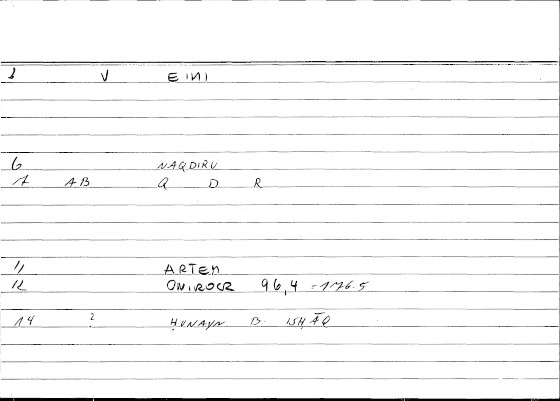 1 V EINI
6 NAQDIRU
7 AB Q D R
11 ARTEM
12 ONIROCR 96,4 = 176.5
14 ? ḤUNAYN B. ISḤĀQ